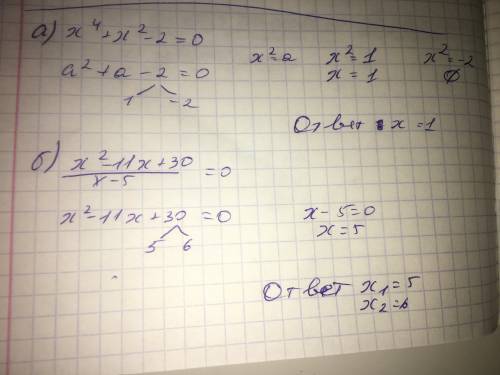 а) x⁴+x²-2=0
a²+a-2=0
1 -2
x²=a x²=1 x²=-2
x=1 ∅
Ответ x=1
б) (x²-11x+30)/(x-5) =0
x²-11x+30=0
5 6
x-5=0
x=5
Ответ x₁=5
x₂=6